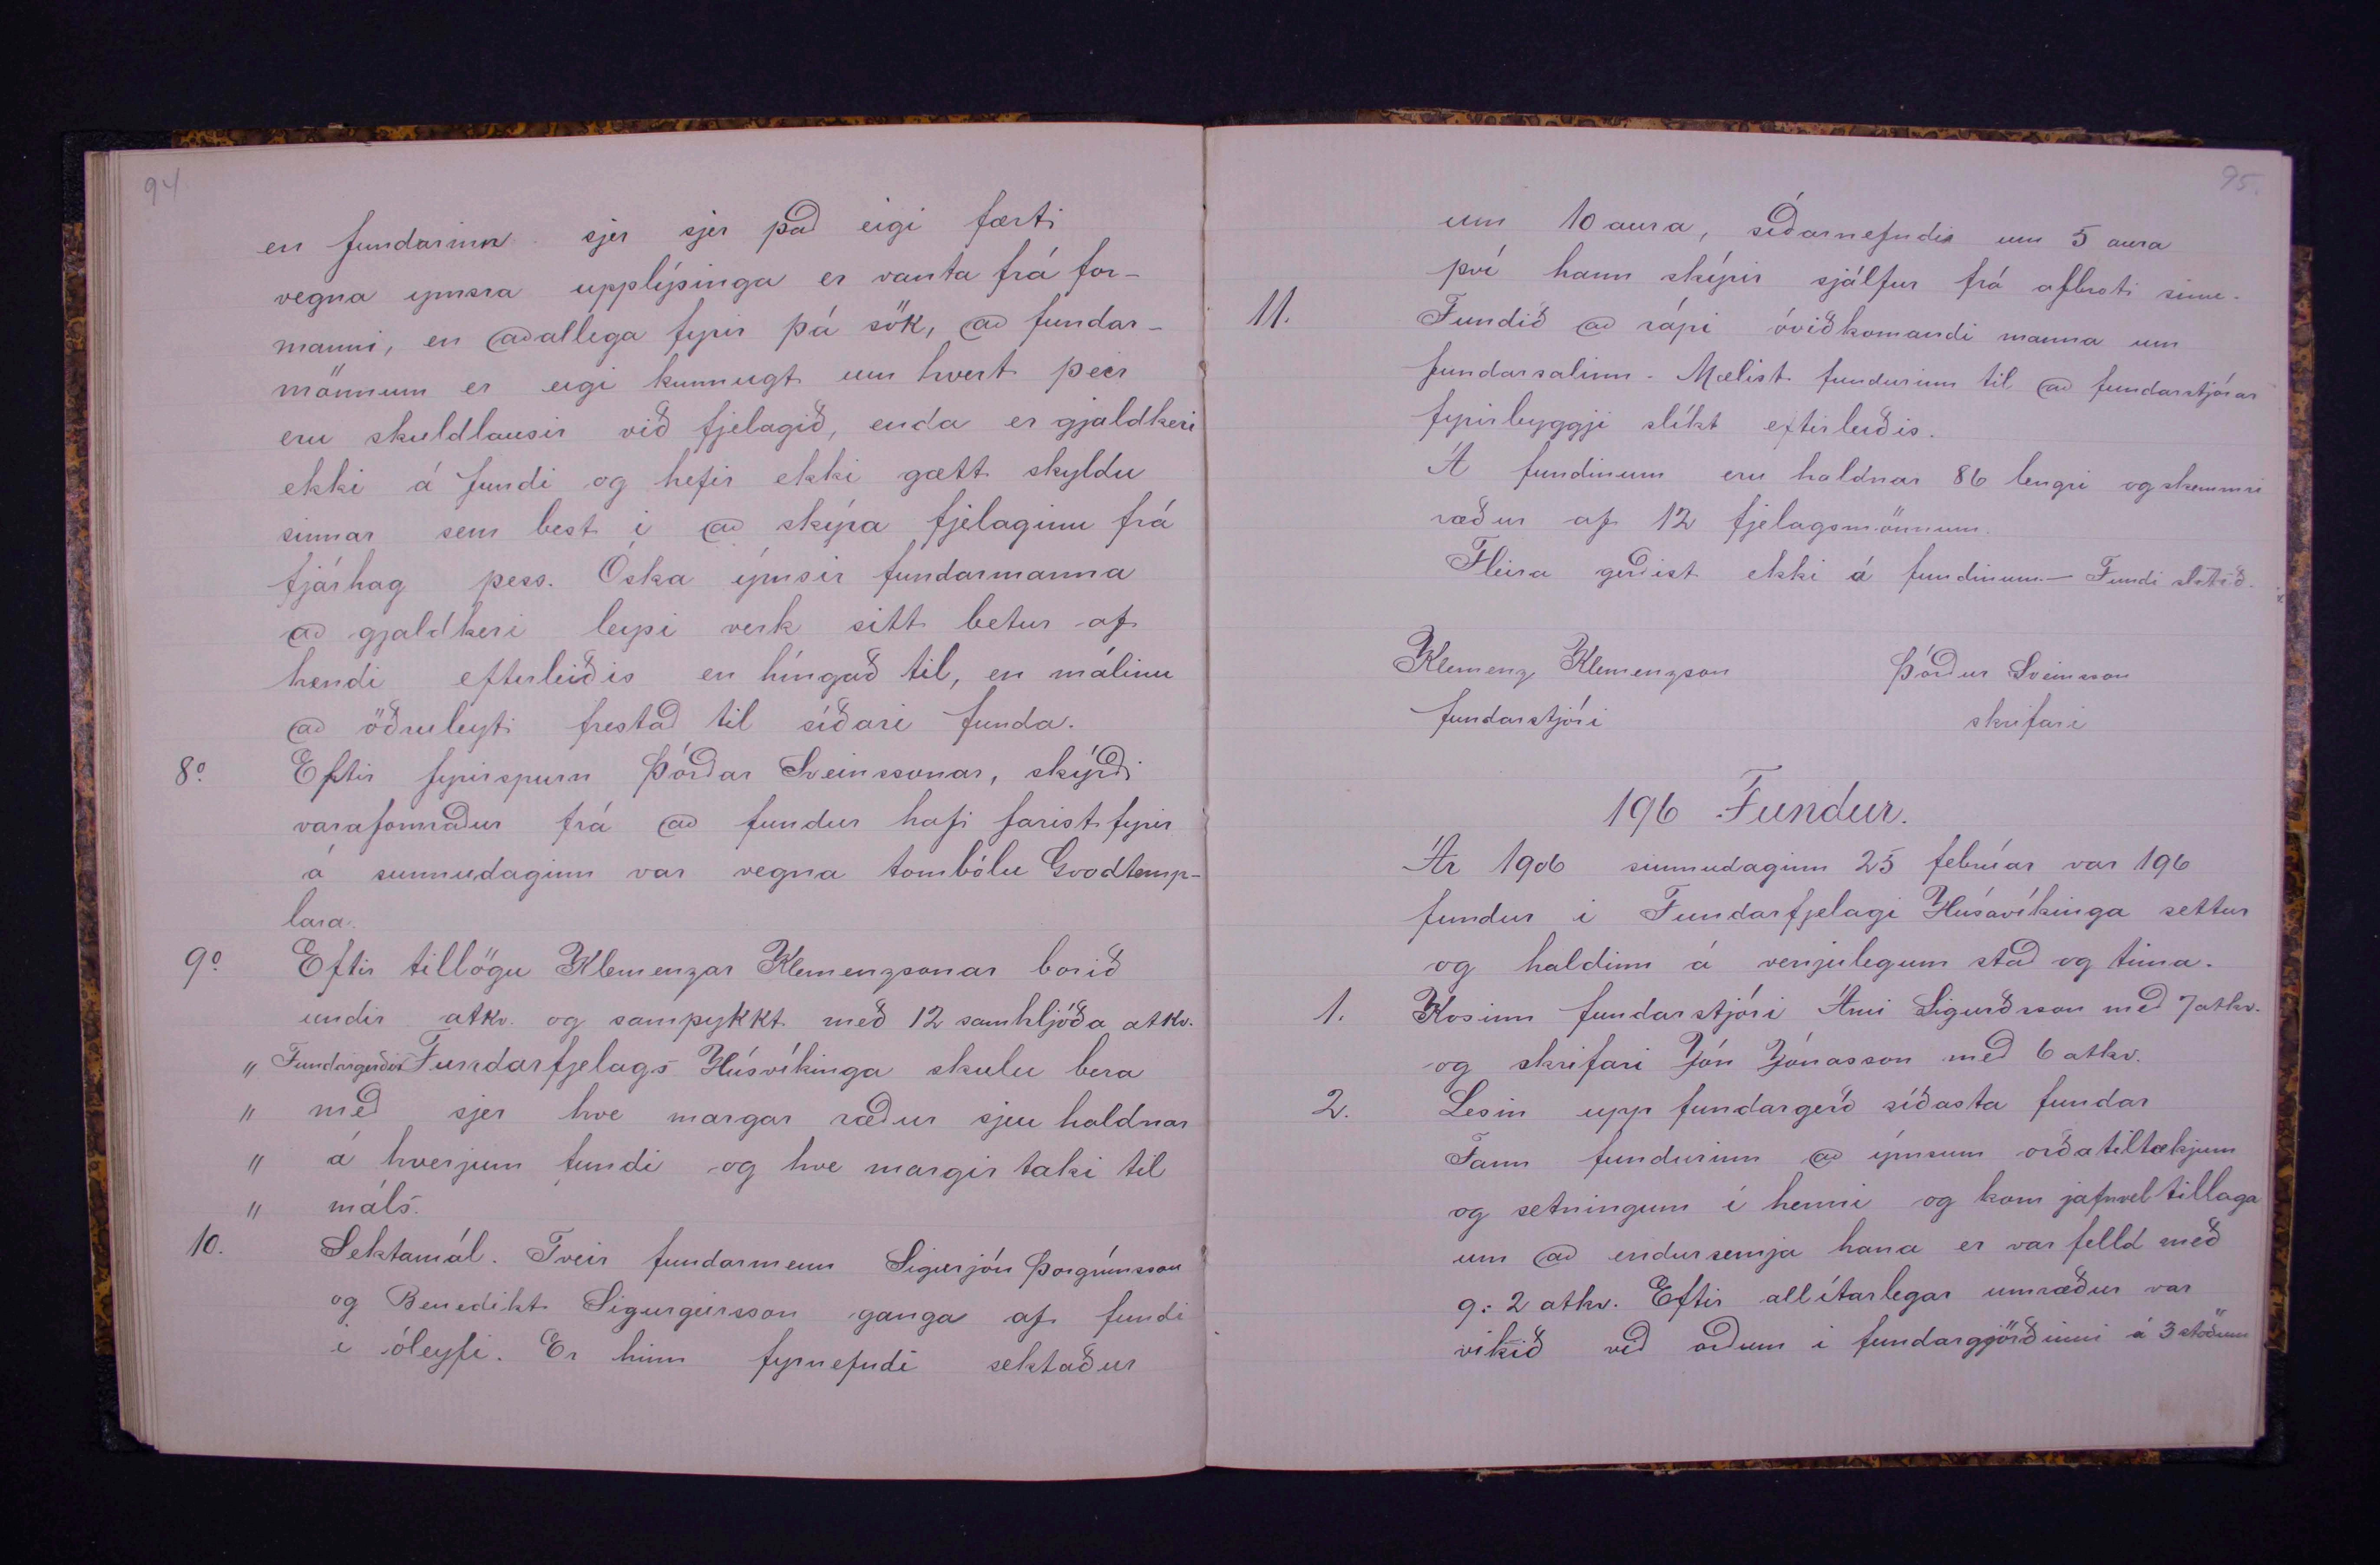 94
en fundarinn sjer sjer það eigi færti
vegna ymsra upplýsinga er vanta frá for-
manni, en aðallega fyrir þá sök, að fundar-
mönnum er eigi kunnugt um hvert þeir
eru skuldlausir við fjelagið, enda er gjaldkeri
ekki á fundi og hefir ekki gætt skyldu
sinnar sem best í að skýra fjelaginu frá
fjárhag þess. Óska ýmsir fundarmanna
að gjaldkeri leysi verk sitt betur af
hendi efterleiðis en híngað til, en málinu
að öðruleyti frestað til síðari funda.
8º. Eftir fyrirspurn Þórðar Sveinssonar, skýrði
varaformaður frá að fundur hafi farist fyrir
á sunnudaginn var vegna tombólu Goodtemp-
lara.
9º. Eftir tillögu Klemenzar Klemenzsonar borið
undir atkv. og samþykkt með 12 samhljóða atkv.
„ Fundargerðir Fundarfjelags Húsvíkinga skulu bera
„ með sjer hve margar ræður sjeu haldnar
„ á hverjum fundi og hve margir taki til
„ máls.
10. Sektamál. Tveir fundarmenn Sigurjón Þorgrímsson
og Benedikt Sigurgeirsson ganga af fundi
í óleyfi. Er hinn fyrnefndi sektaður
95.
um 10 aura, síðarnefndi um 5 aura
því hann skýrir sjálfur frá afbroti sínu.
11. Fundið að rápi óviðkomandi manna um
fundarsalinn. Mælist fundurinn til að fundarstjórar
fyrirbyggji slíkt eftirleiðis.
Á fundinum eru haldnar 86 lengri og skemmri
ræður af 12 fjelagsmönnum.
Fleira gerðist ekki á fundinum. — Fundi slitið.
Klemenz Klemenzson Þórður Sveinsson
fundarstjóri skrifari
196 Fundur.
Ár 1906 sunnudaginn 25 febrúar var 196
fundur í Fundarfjelagi Húsavíkinga settur
og haldinn á venjulegum stað og tíma.
1. Kosinn fundarstjóri Árni Sigurðsson með 7 atkv.
og skrifari Jón Jónasson með 6 atkv.
2. Lesin upp fundargerð síðasta fundar
Fann fundurinn að ýmsum orðatiltækjum
og setningum í henni og kom jafnvel tillaga
um að endursemja hana er var felld með
9: 2 atkv. Eftir allítarlegar umræður var
vikið við orðum í fundargjörðinni á 3 stöðum